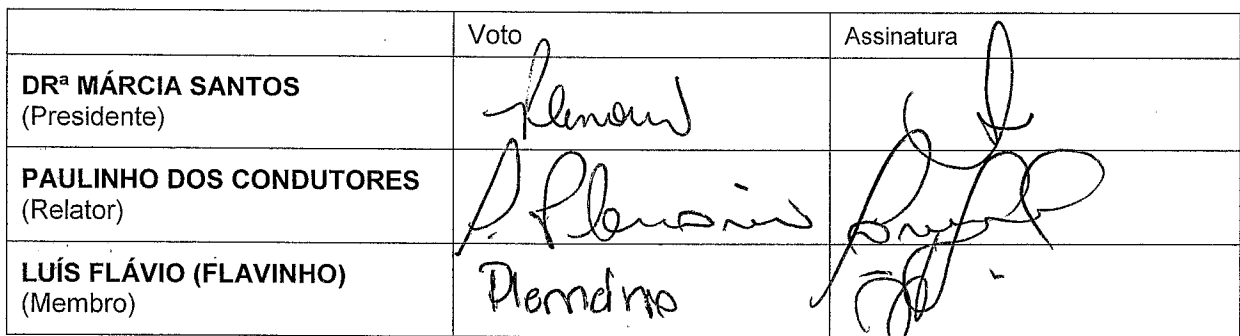 Voto Assinatura
DRª MÁRCIA SANTOS
(Presidente)
PAULINHO DOS CONDUTORES
(Relator)
P. Plenário
LUÍS FLÁVIO (FLAVINHO)
(Membro)
Plenário